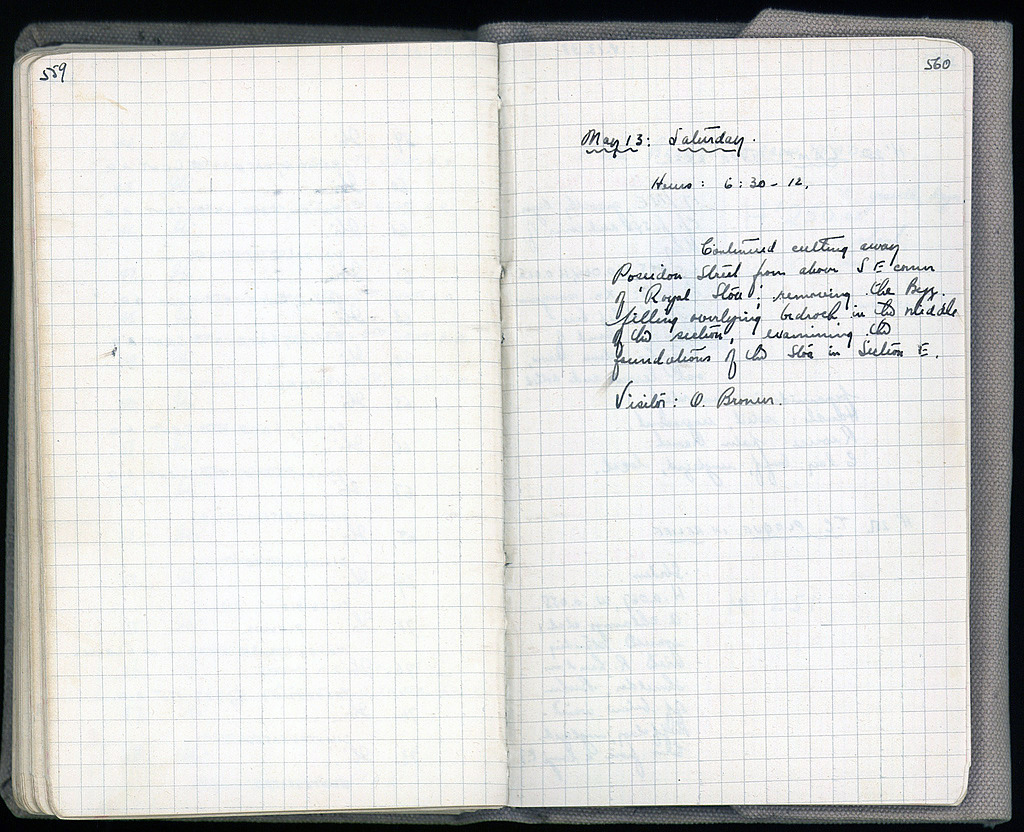 559
560
May 13: Saturday.
Hours: 6:30 - 12.
Continued cutting away
Poseidon Street from above S E corner
of 'Royal Stoa'; removing the Byz.
filling overlying bedrock in the middle
of the section, examining the
foundations of the Stoa in Section E.
Visitor: O. Broneer.